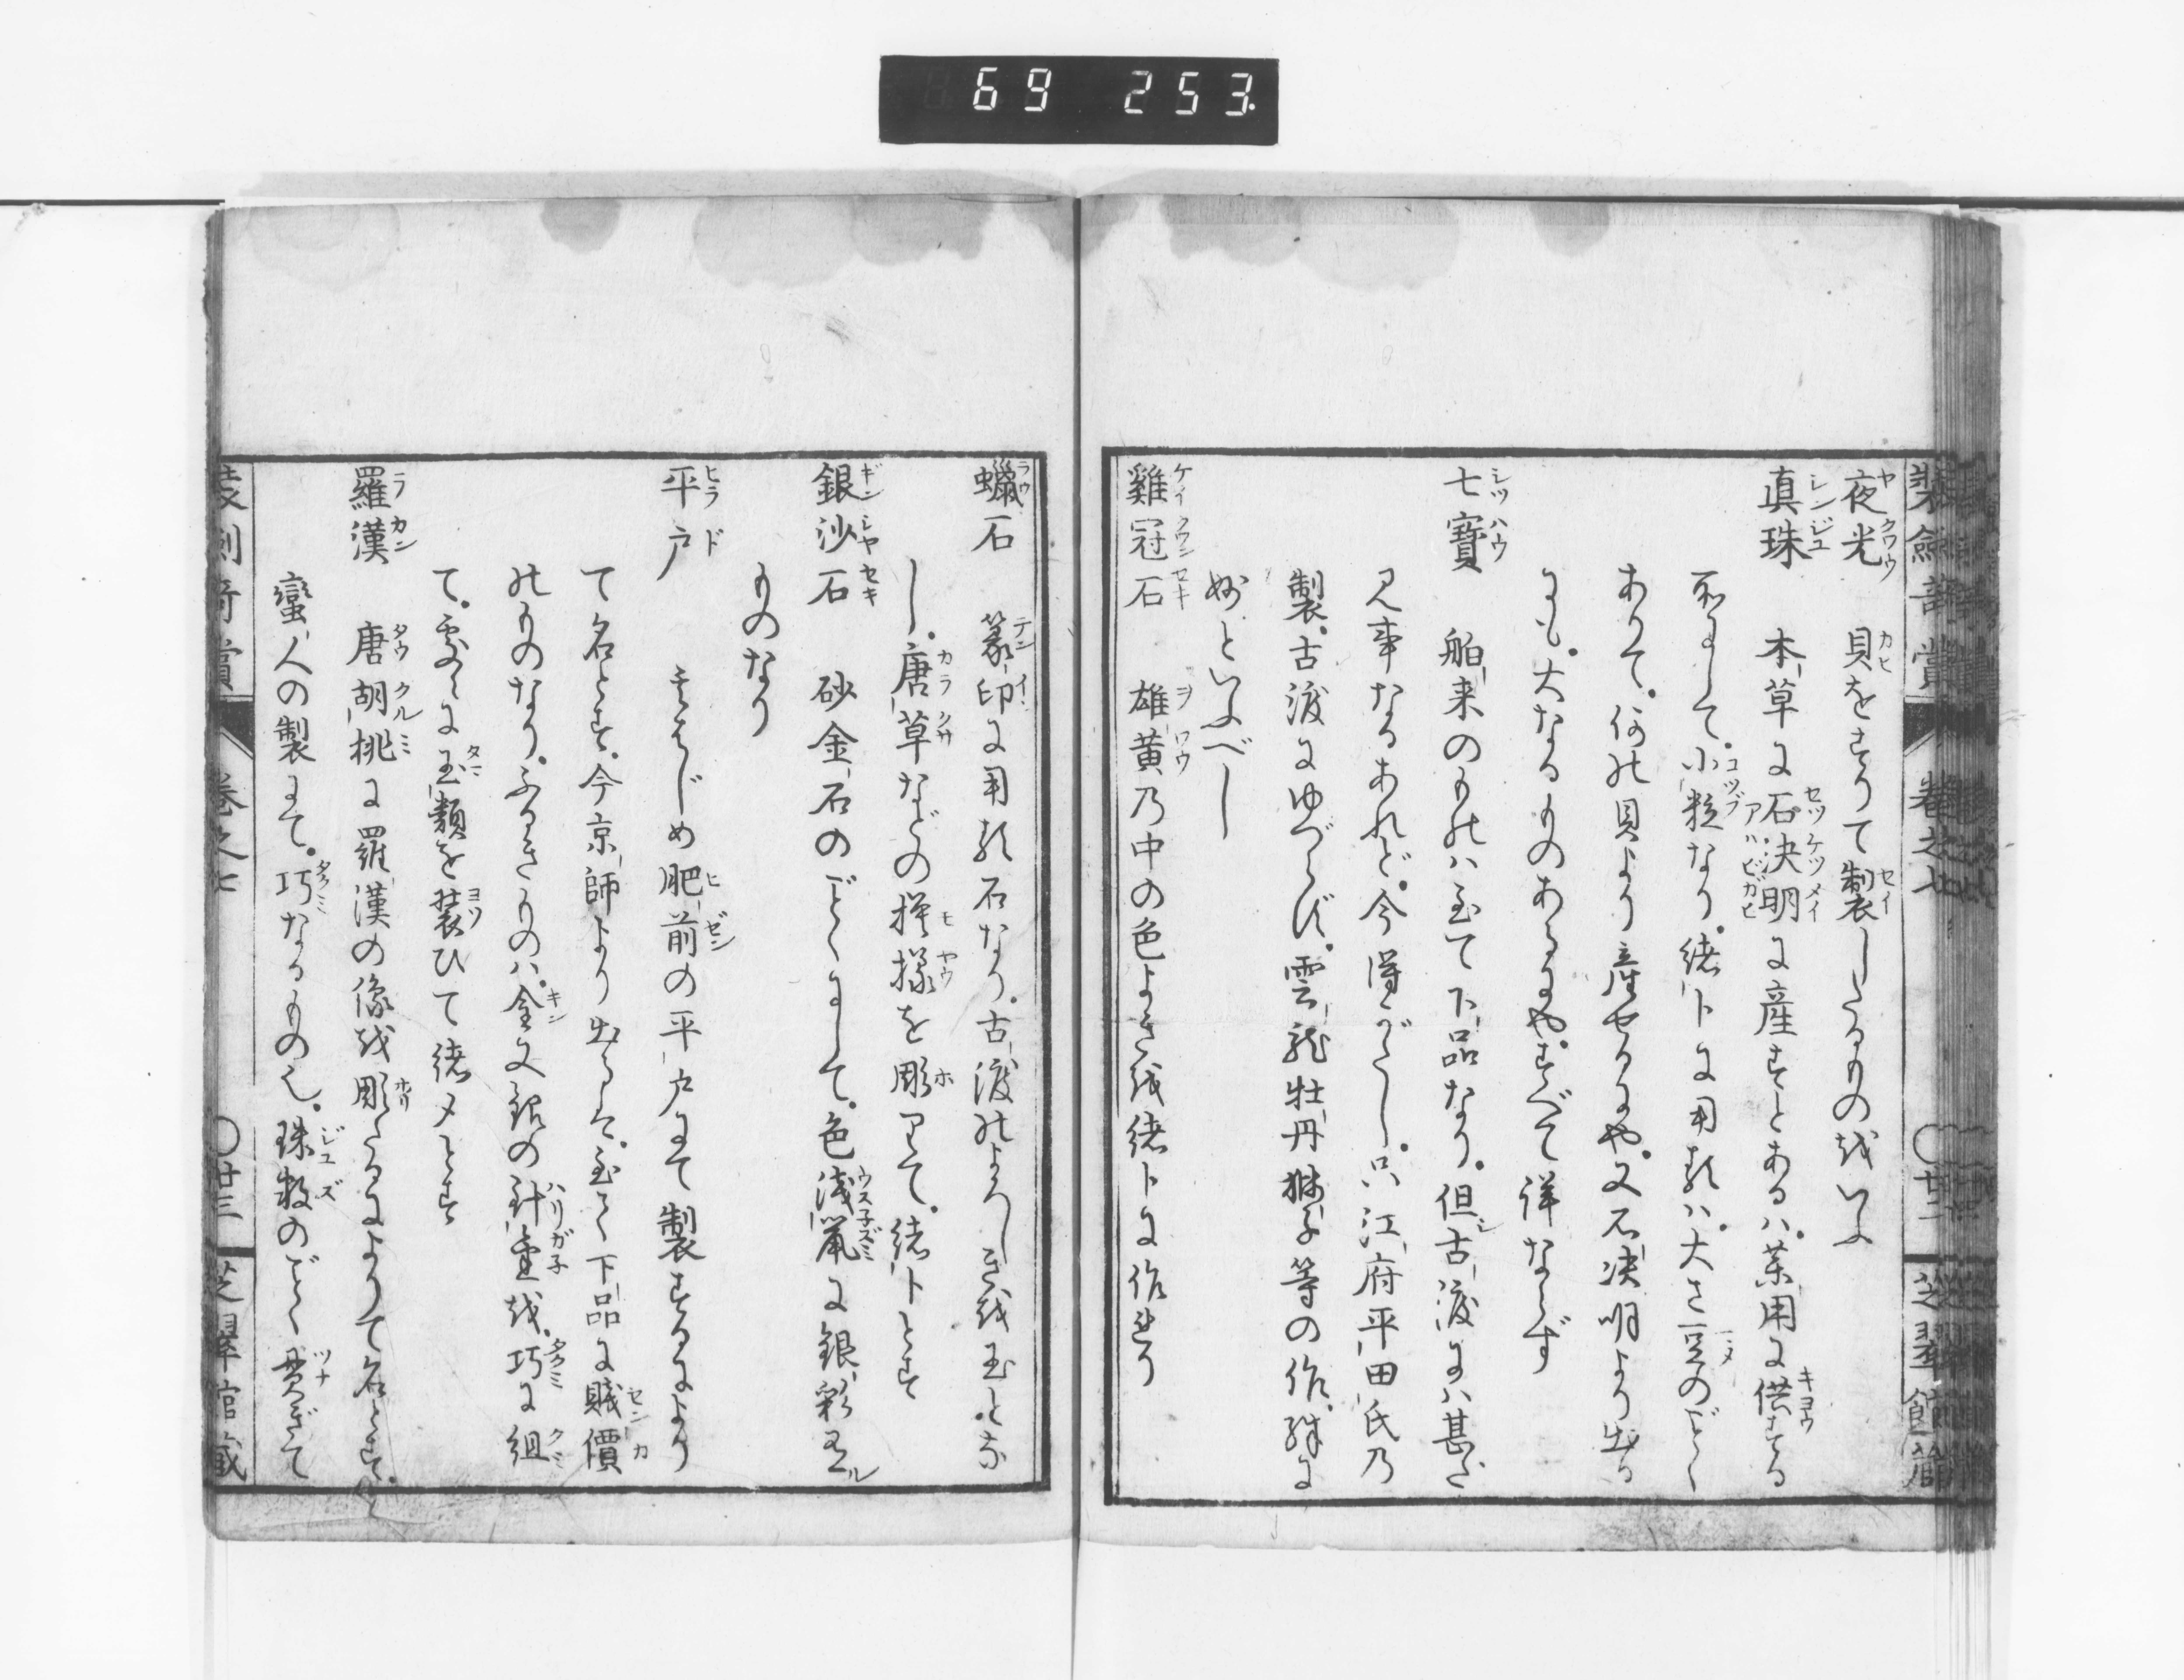 69 253
夜光 貝をすりて製したるものをいふ
真珠 本草に石決明に産すとあるハ薬用に供する
而して小粒なり。緒卜に用るハ大さ豆のごとく
ありて。何の貝より産せるにや。又石決明より出る
にも。大なるものあるにや。すべて詳ならず
七寶 舶来のものハ至て下品なり。但古渡にハ甚だ
見事なるあれど。今得がたし。只江府平田氏乃
製。古渡にゆづらず。雲龍牡丹獅子等の作。殊に
妙といふべし
雞冠石 雄黄乃中の色よきを緒卜に作れり
蠟石 篆印に用る石なり。古渡のよろしきを玉とな
し。唐草などの摸様を彫りて。緒卜とす
銀沙石 砂金石のごとくにして。色浅鼠に銀彩有ル
ものなり
平戸 そのはじめ肥前の平戸にて製するにより
て名とす。今京師より出るハ。至て下品に賎價
のものなり。ふるきものハ。金又銀の針金を。巧に組
て。處々に玉類を装ひて緒〆とす
羅漢 唐胡桃に羅漢の像を彫たるによりて名とす。
蠻人の製にて。巧なるもの也。珠数のごとく貫ぎて
卷之七
〇廿三
芝翠館藏